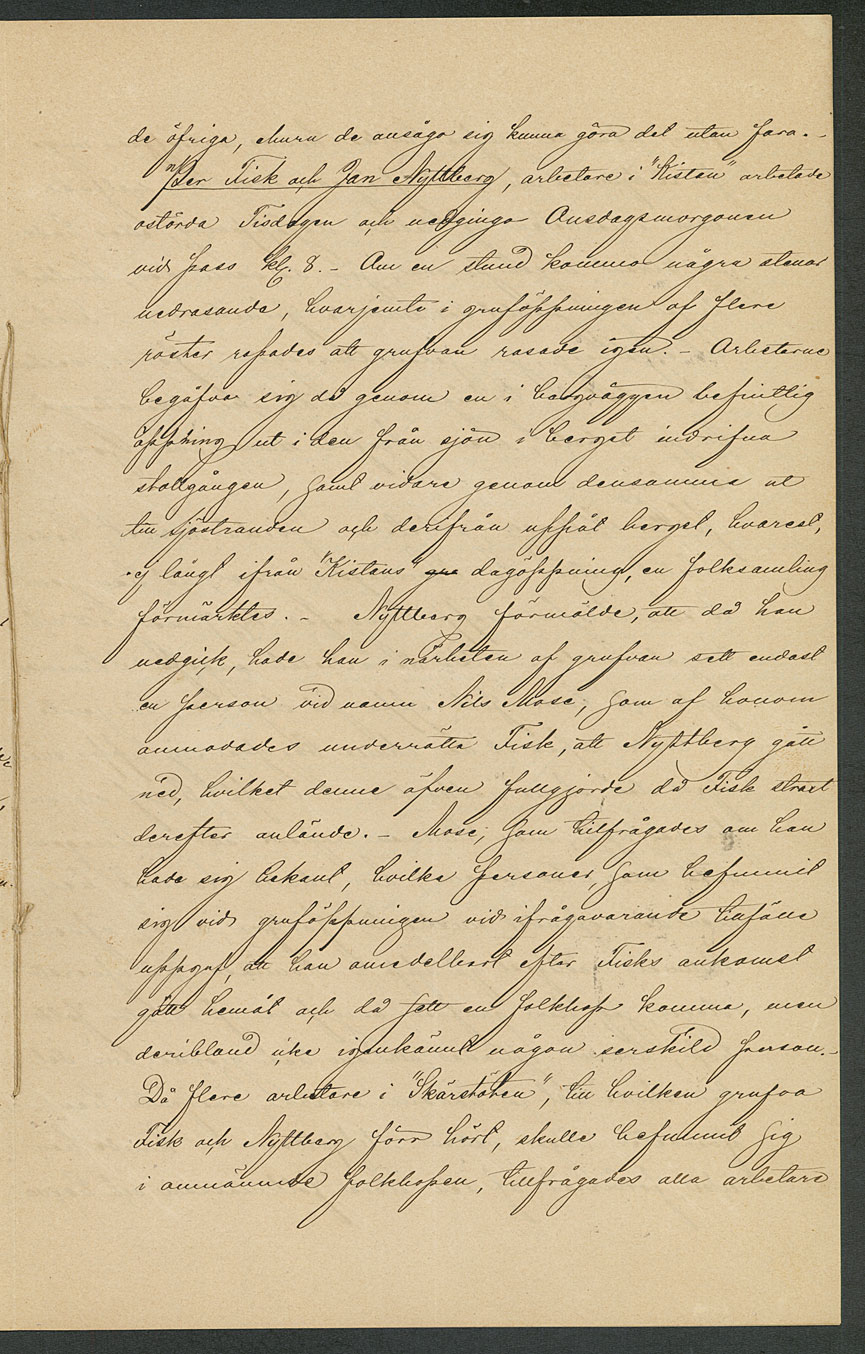 de öfriga, ehuru de ansågo sig kunna göra det utan fara. -
Per Fisk och Jan Nyttberg, arbetare i "Kistan" arbetade
ostörda Tisdagen och nedgingo Onsdagsmorgonen
vid pass kl. 8. - Om en stund kommo några stenar
nedrasande, hvarjemte i gruföppningen af flere
röster ropades att grufvan rasade igen. - Arbetarne
begåfvo sig då genom en i bergväggen befintlig
öppning ut i den från sjön i berget indrifna
stollgången, samt vidare genom densamma ut
till sjöstranden och derifrån uppåt berget, hvarest,
ej långt ifrån "Kistans" dagöppning, en folksamling
förmärktes. - Nyttberg förmälde, att då han
nedgick, hade han i närheten af grufvan sett endast
en person vid namn Nils Mose, som af honom
anmodades underrätta Fisk, att Nyttberg gått
ned, hvilket denne äfven fullgjorde då Fisk straxt
derefter anlände. - Mose, som tillfrågades om han
hade sig bekant, hvilka personer, som befunnit
sig vid gruföppningen vid ifrågavarande tillfälle
uppgaf, att han omedelbart efter Fisks ankomst
gått hemåt och då sett en folkhop komma, men
deribland icke igenkännt någon serskild person. -
Då flere arbetare i "Skärstöten", till hvilken grufva
Fisk och Nyttberg förr hört, skulle befunnit sig
i omnämnde folkhopen, tillfrågades alla arbetare